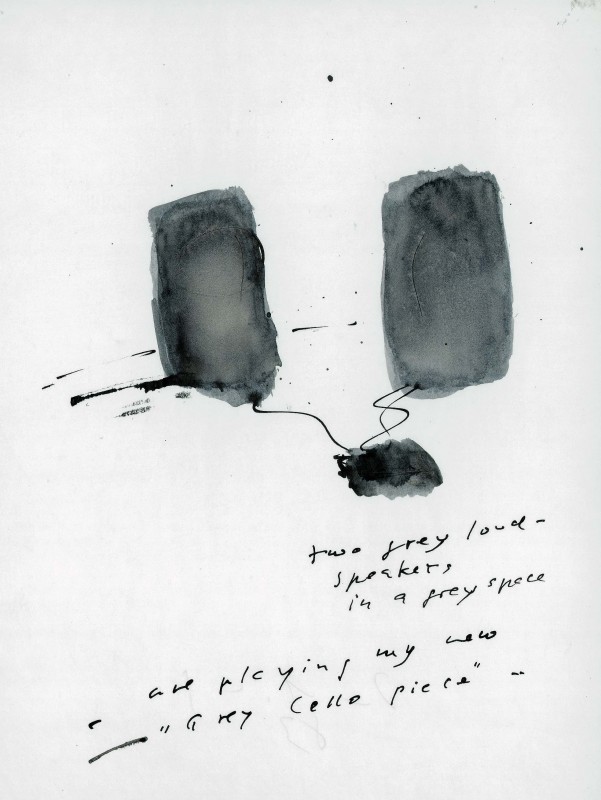 two grey loud-
speakers
in a grey space
are playing my new
„Grey Cello piece" –